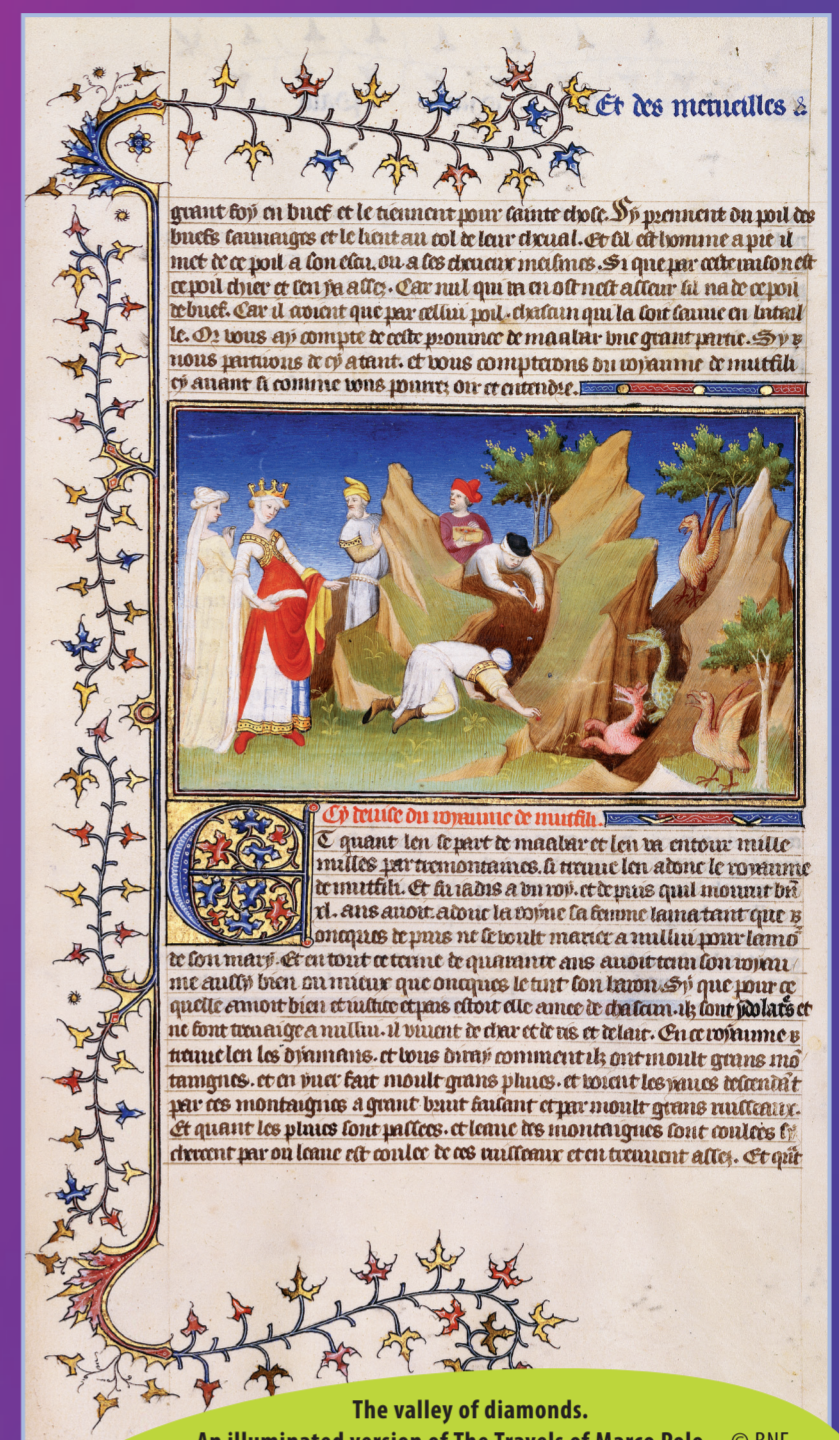 Et des merueilles &
grant foy en buef et le tiennent pour sainte chose. Sy prennent du poil des
buefs sauuaiges et le lient au col de leur cheual. Et sil est homme a pie il
met de ce poil a son escu. ou a ses cheueux meismes. Si que par ceste raison est
ce poil chier et sen ya assez. Car nul qui va en ost nest asseur sil na de ce poil
de buef. Car il croient que par cellui poil. chascun qui la soit sauue en batail
le. Or vous ay compte de ceste prouince de maabar vne grant partie. Sy
nous partirons de cy atant. et vous compterons du royaume de mutfili
cy auant si comme vous pourrez oir et entendre.
Cy deuise du royaume de mutfili.
ET quant len se part de maabar et len va entour mille
milles par tremontaines. si treuue len adonc le royaume
de mutfili. Et fu iadis a un roy. et depuis quil mourut bien
xl. ans auoit. adonc la royne sa femme lama tant que
oncques depuis ne se voult marier a nullui pour lamo
de son mary. Et en tout ce terme de quarante ans auoit tenu son royau
me aussy bien ou mieux que oncques le tint son baron. Sy que pour ce
quelle amoit bien et iustice et pais estoit elle amee de chascun. ilz sont ydolatres et
ne font treuaige a nullui. il viuent de char et de ris et de lait. En ce royaume
treuue len les dyamans. et vous diray comment ilz ont moult grans mo
taignes. et en yuer fait moult grans pluies. et voient les yaues descendat
par ces montaignes a grant bruit faisant et par moult grans ruisseaux.
Et quant les pluies sont passees. et leaue des montaignes sont coulees sy
cherchent par ou leaue est coulee de ces ruisseaux et en treuuent assez. Et qnt
The valley of diamonds.
An illuminated version of The Travels of Marco Polo. © BNF